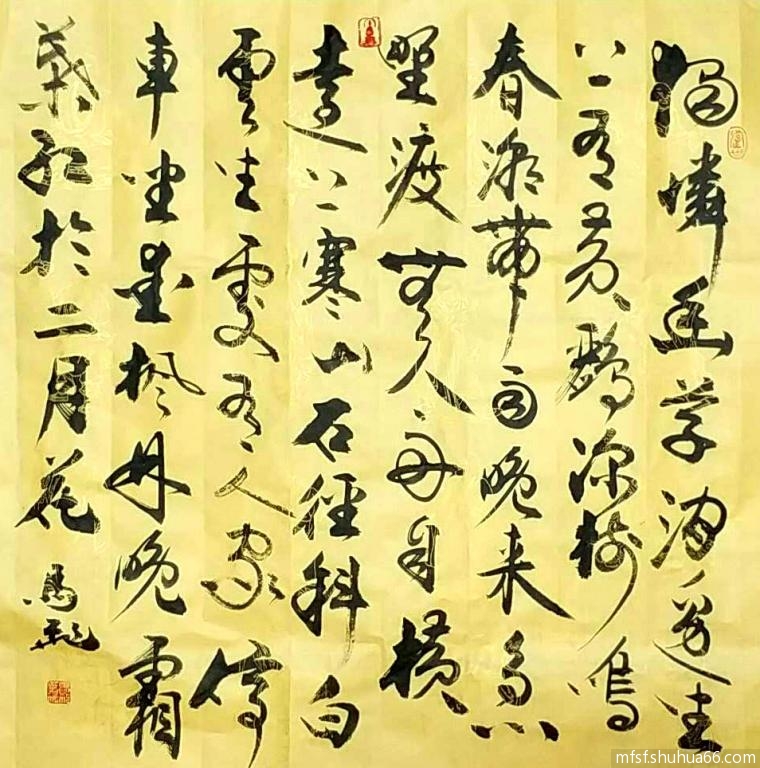 獨憐幽草澗邊生
上有黃鸝深樹鳴
春潮帶雨晚来急
野渡無人舟自橫
遠上寒山石徑斜白
雲生處有人家停
車坐愛楓林晚霜
葉紅於二月花
馬
mfsf.shuhua66.com